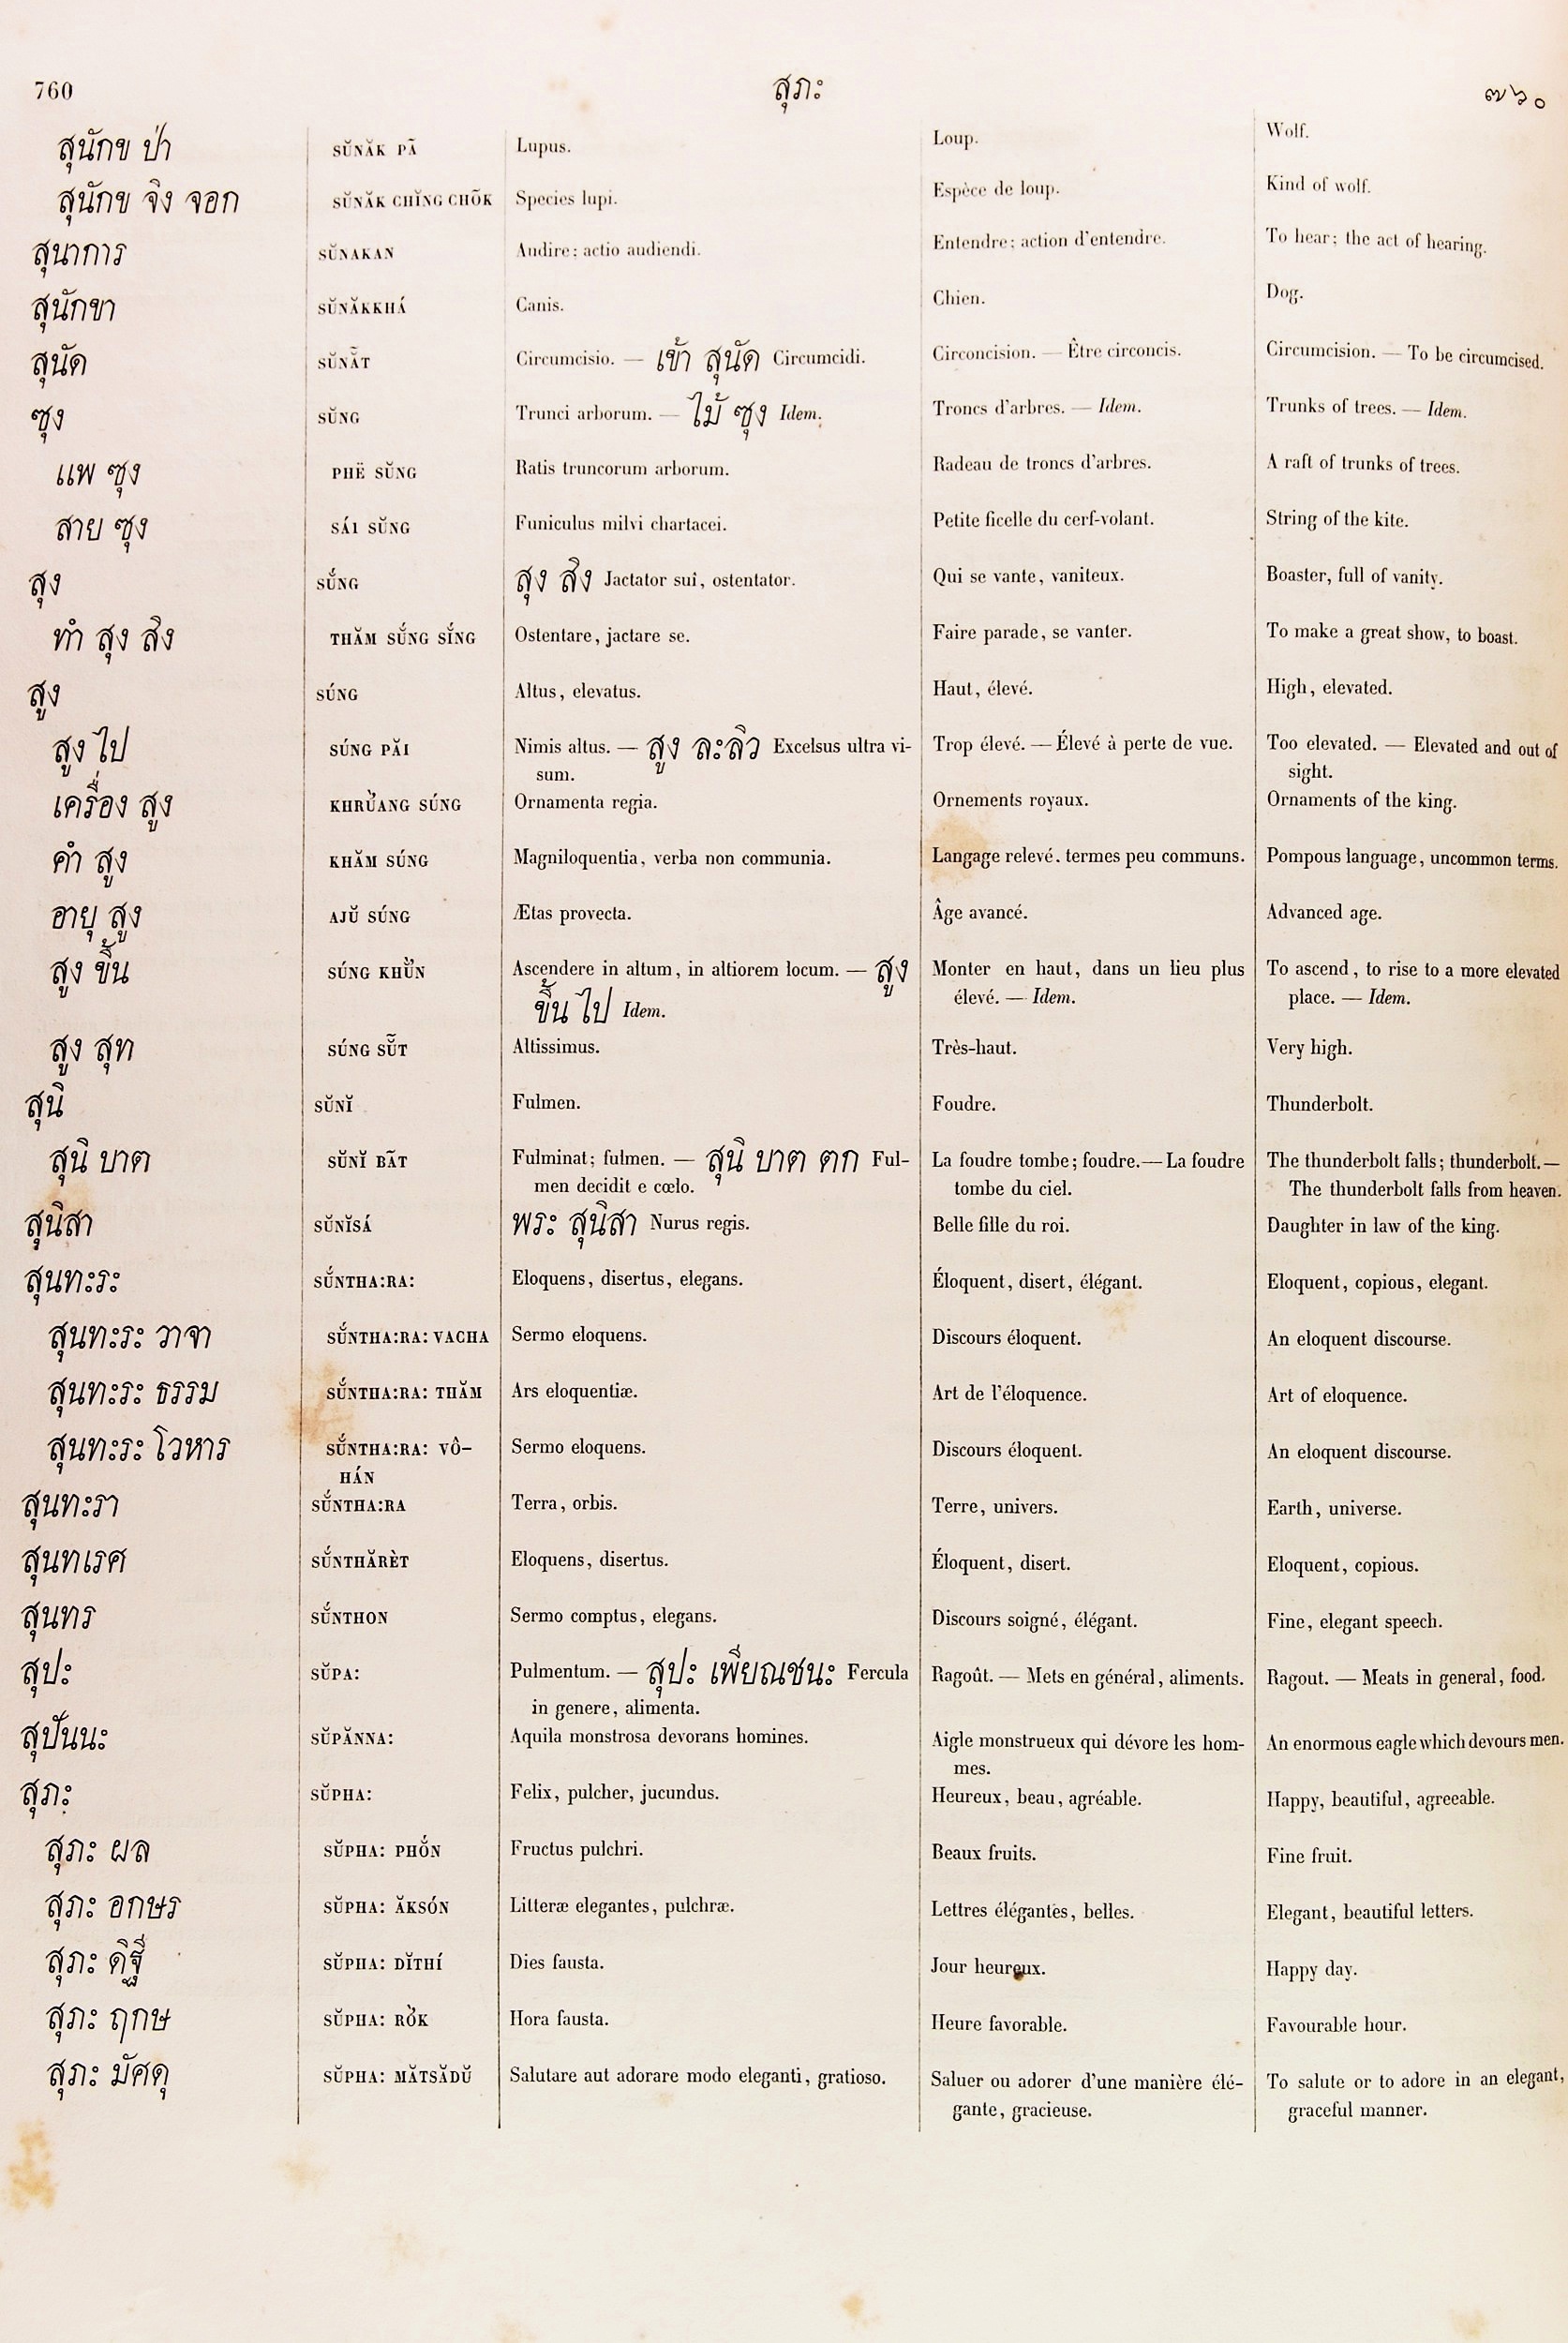 760 สุภะ ๗๖๐
สุนักข ป่า SŬNĂK PÃ Lupus. Loup. Wolf.
สุนักข จิง จอก SŬNĂK CHĬNG CHÕK Species lupi. Espèce de loup. Kind of wolf.
สุนาการ SŬNAKAN Audire; actio audiendi. Entendre; action d'entendre. To hear; the act of hearing.
สุนักขา SŬNĂKKHÁ Canis. Chien. Dog.
สุนัด SŬNÃT Circumcisio. — เข้า สุนัด Circumcidi. Circoncision. — Être circoncis. Circumcision. — To be circumcised.
ซุง SŬNG Trunci arborum. — ไม้ ซุง Idem. Troncs d'arbres. — Idem. Trunks of trees. — Idem.
แพ ซุง PHË SŬNG Ratis truncorum arborum. Radeau de troncs d'arbres. A raft of trunks of trees.
สาย ซุง SÁI SŬNG Funiculus milvi chartacei. Petite ficelle du cerf-volant. String of the kite.
สุง SŬ́NG สุง สิง Jactator sui, ostentator. Qui se vante, vaniteux. Boaster, full of vanity.
ทำ สุง สิง THĂM SŬ́NG SĬ́NG Ostentare, jactare se. Faire parade, se vanter. To make a great show, to boast.
สูง SÚNG Altus, elevatus. Haut, élevé. High, elevated.
สูง ไป SÚNG PĂI Nimis altus. — สูง ละลิว Excelsus ultra vi- Trop élevé. — Élevé à perte de vue. Too elevated. — Elevated and out of
sum. sight.
เครื่อง สูง KHRU̎ANG SÚNG Ornamenta regia. Ornements royaux. Ornaments of the king.
คำ สูง KHĂM SÚNG Magniloquentia, verba non communia. Langage relevé. termes peu communs. Pompous language, uncommon terms.
อายุ สูง AJŬ SÚNG Ætas provecta. Âge avancé. Advanced age.
สูง ขึ้น SÚNG KHU̎N Ascendere in altum, in altiorem locum. — สูง Monter en haut, dans un lieu plus To ascend, to rise to a more elevated
ขึ้น ไป Idem. élevé. — Idem. place. — Idem.
สูง สุท SÚNG SŬ̃T Altissimus. Très-haut. Very high.
สุนิ SŬNĬ Fulmen. Foudre. Thunderbolt.
สุนิ บาต SŬNĬ BÃT Fulminat; fulmen. — สุนิ บาต ตก Ful- La foudre tombe; foudre. — La foudre The thunderbolt falls; thunderbolt. —
men decidit e cœlo. tombe du ciel. The thunderbolt falls from heaven.
สุนิสา SŬNĬSÁ พระ สุนิสา Nurus regis. Belle fille du roi. Daughter in law of the king.
สุนทะระ SŬ́NTHA:RA: Eloquens, disertus, elegans. Éloquent, disert, élégant. Eloquent, copious, elegant.
สุนทะระ วาจา SŬ́NTHA:RA: VACHA Sermo eloquens. Discours éloquent. An eloquent discourse.
สุนทะระ ธรรม SŬ́NTHA:RA: THĂM Ars eloquentiæ. Art de l'éloquence. Art of eloquence.
สุนทะระ โวหาร SŬ́NTHA:RA: VÔ- Sermo eloquens. Discours éloquent. An eloquent discourse.
HÁN
สุนทะรา SŬ́NTHA:RA Terra, orbis. Terre, univers. Earth, universe.
สุนทเรศ SŬ́NTHĂRÈT Eloquens, disertus. Éloquent, disert. Eloquent, copious.
สุนทร SŬ́NTHON Sermo comptus, elegans. Discours soigné, élégant. Fine, elegant speech.
สุปะ SŬPA: Pulmentum. — สุปะ เพียณชนะ Fercula Ragoût. — Mets en général, aliments. Ragout. — Meats in general, food.
in genere, alimenta.
สุปันนะ SŬPĂNNA: Aquila monstrosa devorans homines. Aigle monstrueux qui dévore les hom- An enormous eagle which devours men.
mes.
สุภะ SŬPHA: Felix, pulcher, jucundus. Heureux, beau, agréable. Happy, beautiful, agreeable.
สุภะ ผล SŬPHA: PHŎ́N Fructus pulchri. Beaux fruits. Fine fruit.
สุภะ อกษร SŬPHA: ĂKSÓN Litteræ elegantes, pulchræ. Lettres élégantes, belles. Elegant, beautiful letters.
สุภะ ดิฐี SŬPHA: DĬTHÍ Dies fausta. Jour heureux. Happy day.
สุภะ ฤกษ SŬPHA: RO̎K Hora fausta. Heure favorable. Favourable hour.
สุภะ มัศดุ SŬPHA: MĂTSĂDŬ Salutare aut adorare modo eleganti, gratioso. Saluer ou adorer d'une manière élé- To salute or to adore in an elegant,
gante, gracieuse. graceful manner.